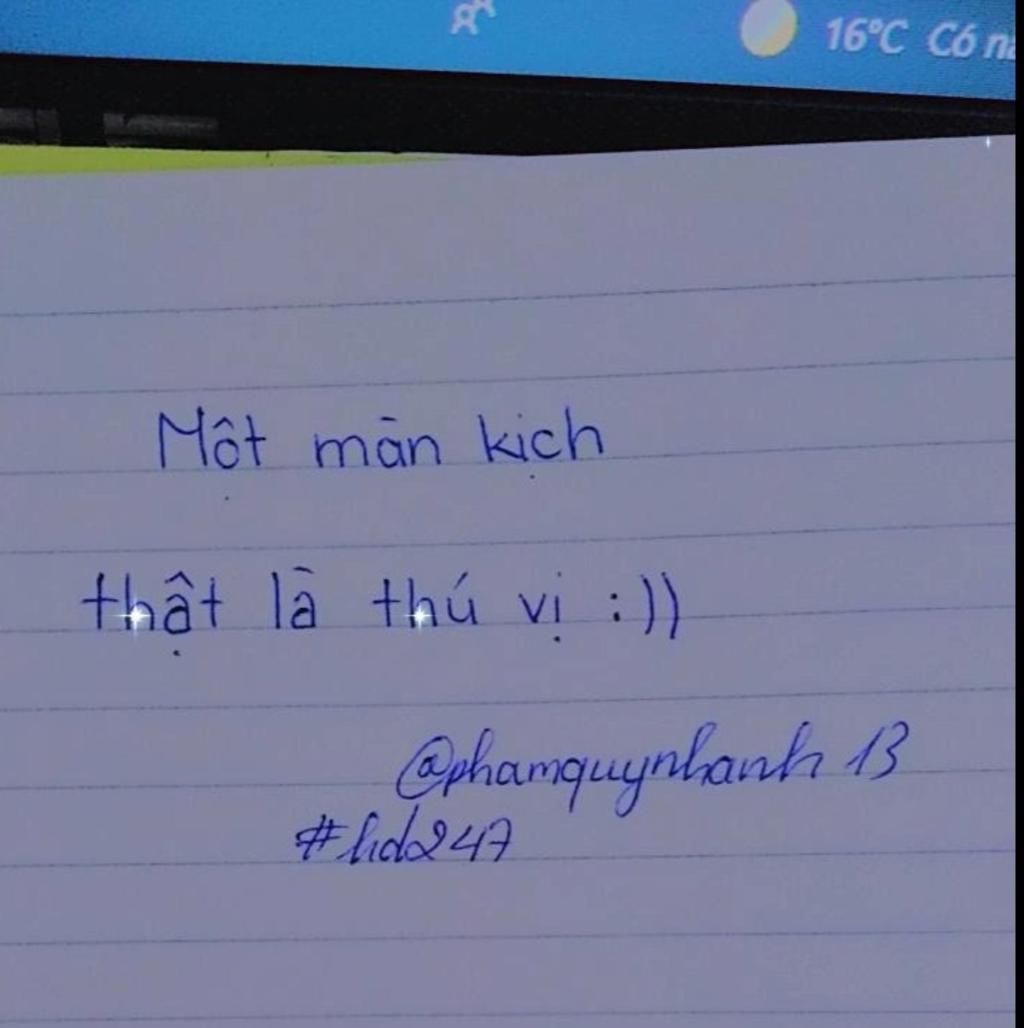 16°C Có
Một màn kịch
thật là thú vị :))
@phamquynhanh 13
#hd247